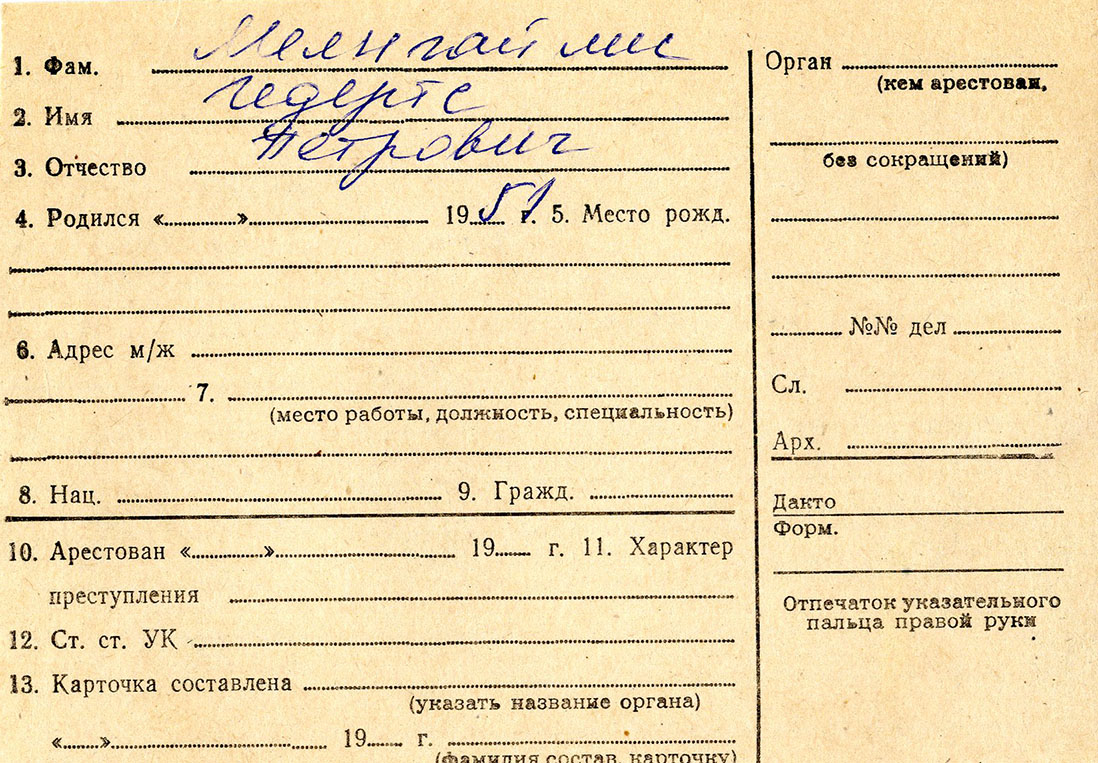 1. Фам. Мелнгайлис
2. Имя Гедертс
3. Отчество Петрович
4. Родился «........»........ 1951 г. 5. Место рожд.
6. Адрес м/ж
7.
(место работы, должность, специальность)
8. Нац. 9. Гражд.
10. Арестован «........»........ 19.... г. 11. Характер
преступления
12. Ст. ст. УК
13. Карточка составлена
(указать название органа)
«......»........ 19.... г.
(фамилия состав. карточку)
Орган
(кем арестован,
без сокращений)
№№ дел
Сл.
Арх.
Дакто
Форм.
Отпечаток указательного
пальца правой руки